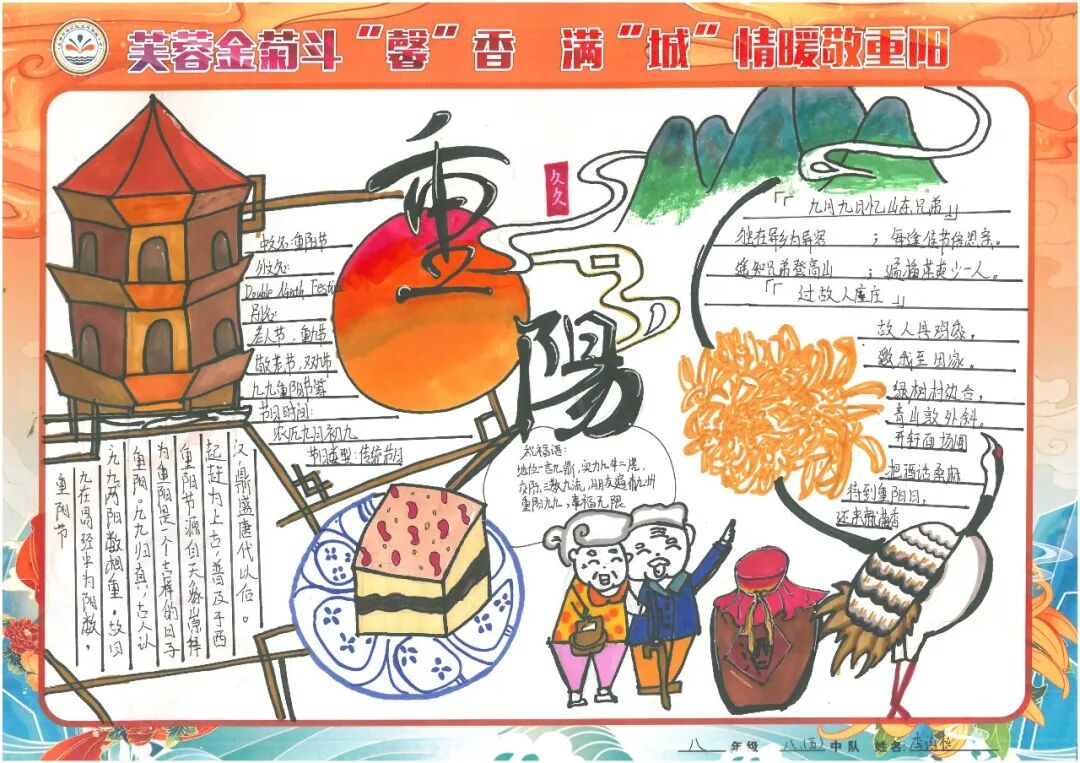 芙蓉金菊斗“馨”香 满“城”情暖敬重阳
重阳
久久
中文名:重阳节
外文名:
Double Ninth Festival
别名:
老人节,重九节
敬老节,双九节
九九重阳节等
节日时间:
农历九月初九
节日类型:传统节日
九在易经中为阳数,
九九两阳数相重。故曰
重阳。九九归真,古人认
为重阳是个吉祥的日子
重阳节源自天象崇拜
起
为上古,普及于西
汉,鼎盛唐代以后。
重阳节
祝福语:
地位一言九鼎,实力九牛二虎,
交际三教九流,朋友遍布九州
重阳九九,幸福无限
「九月九日忆山东兄弟」
独在异乡为异客;每逢佳节倍思亲。
遥知兄弟登高山;遍插茱萸少一人。
「过故人庄」
故人具鸡
邀我至田家。
绿树村边合,
青山
外斜。
开轩面场圃
把酒话桑麻
待到重阳日,
还来就菊
八年级 八(五)中队 姓名:李